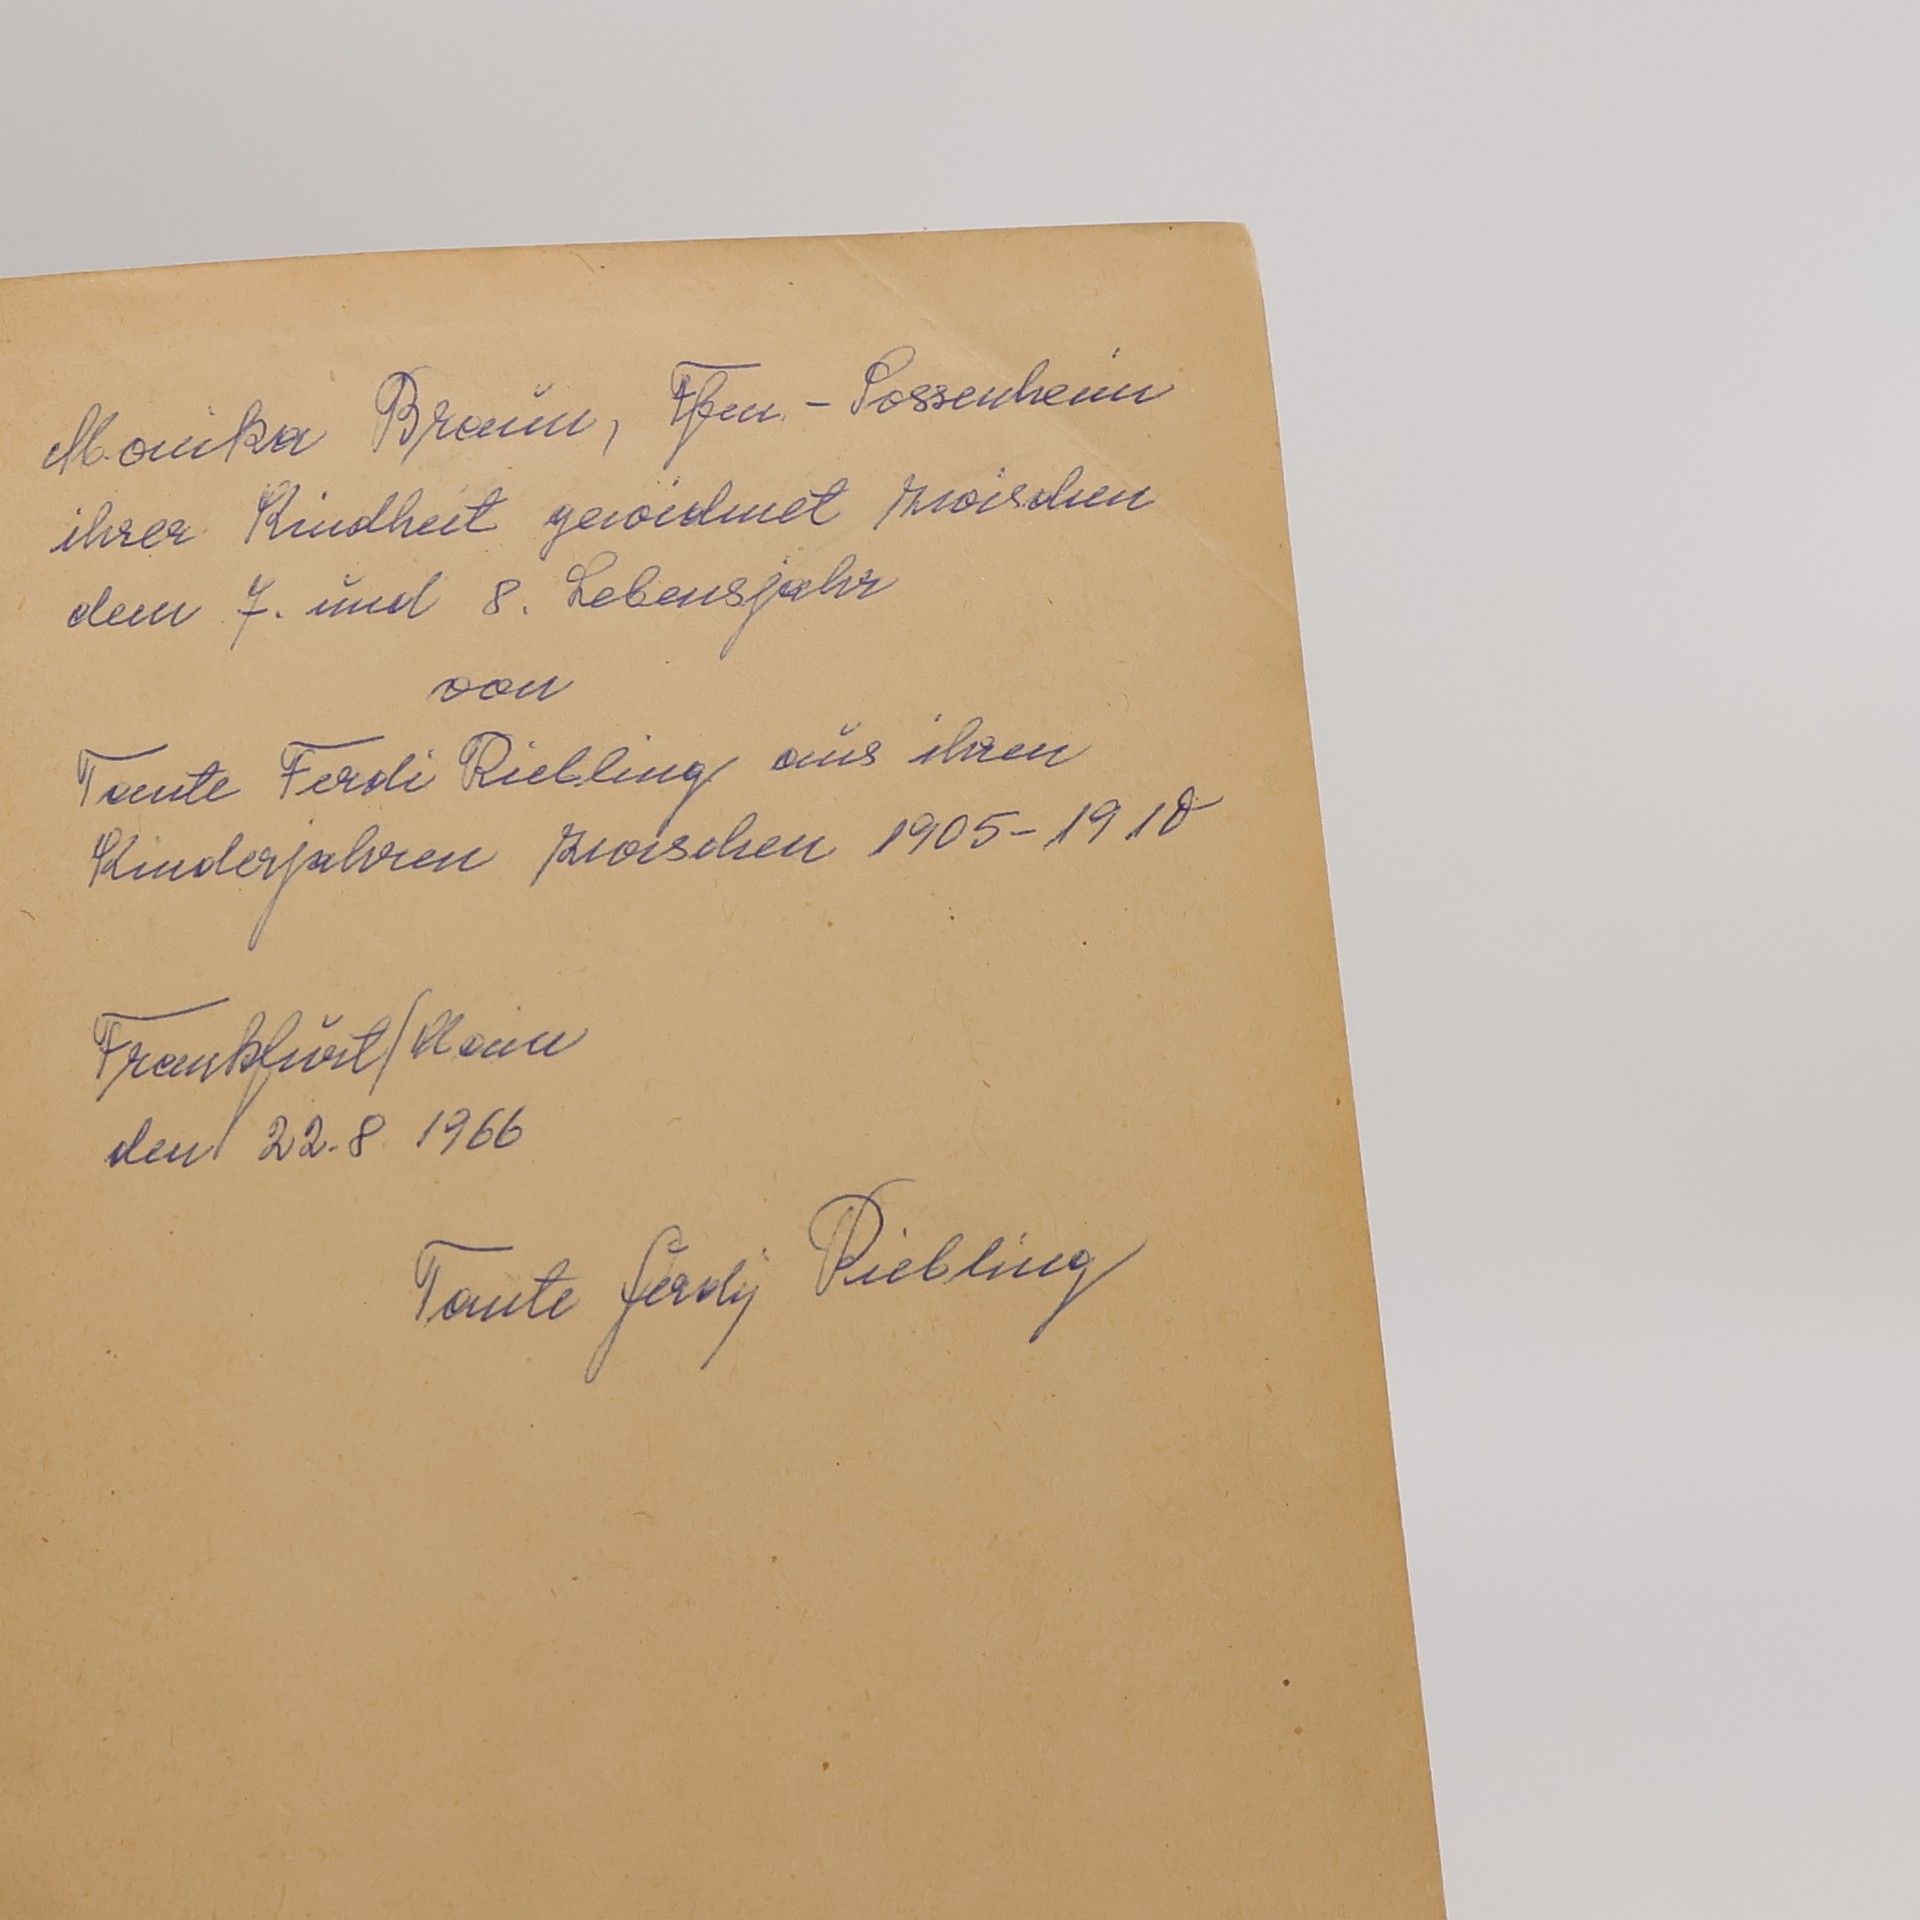 Monika Braun, Ffm. - Sossenheim
ihrer Kindheit gewidmet zwischen
dem 7. und 8. Lebensjahr
von
Tante Ferdi Riebling aus ihren
Kinderjahren zwischen 1905 - 1910
Frankfurt/Main
den 22.8. 1966
Tante Ferdy Riebling